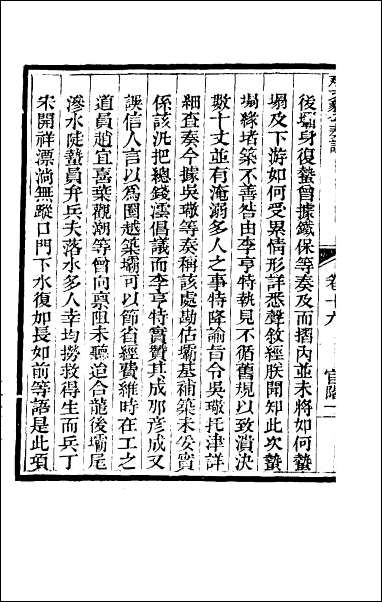 卷十九
官隄二
後壩身復蟄曾據鐵保等奏及而摺內並未將如何蟄
塌及下游如何受累情形詳悉聲敘經朕聞知此次蟄
塌緣堵築不善咎由李亨特執見不循舊規以致潰決
數十丈並有淹溺多人之事特降諭旨令吳璥托津詳
細查奏今據吳璥等奏稱該處勘估壩基補築未妥實
係該汛把總錢澐倡議而李亨特實贊其成那彥成又
誤信人言以為圈越築壩可以節省經費維時在工之
道員趙宜喜葉觀潮等曾向稟阻未聽追合龍後壩尾
滲水陡蟄員弁兵夫落水多人幸均撈救得生而兵丁
宋開祥漂淌無蹤口門下水復如長如前等語是此項